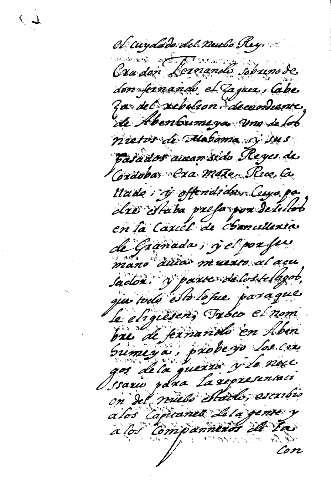 el cuydado del nuebo Rey.
Era don Fernando sobrino de
don fernando el Zaguer, Cabe
za del rebelion, decendiente
de Abenhumeya uno de los
nietos de Mahoma y sus
pasados avian sido Reyes de
Cordoba. Era moço Rico, ca
llado, y offendido. Cuyo pa
dre estaba preso por delictos
en la Carcel de chancilleria
de Granada, y el por su
mano avia muerto al acu
sador, y parte de los testigos,
que todo esto fue para que
le eligiesen, Troco el nom
bre de fernando en Aben
humeya, probeyo los car
gos de la guerra y lo nece
ssario para la representaci
on del nuebo estado, escribio
a los Capitanes de la gente y
a los compañeros de la
con